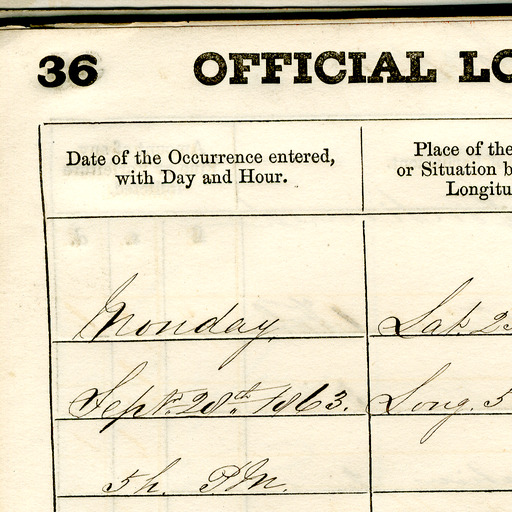 36 OFFICIAL LO
Date of the Occurrence entered,
with Day and Hour.
Place of the
or Situation b
Longitu
Monday, Lat. 25
Septr. 28th 1863. Long. 5
5h. P.M.